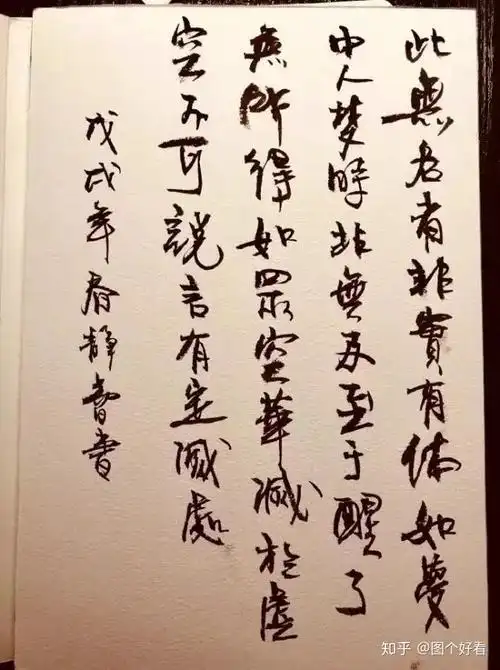 此無名者非實有体如夢
中人梦時非無及至于醒了
無所得如眾空華滅於虛
空不可說言有定滅處
戊戌年春靜書
知乎 @图个好看